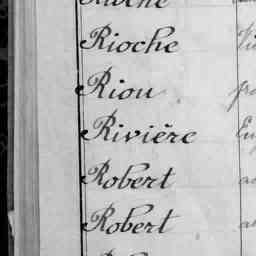 Rioche
Riou
Rivière
Robert
Robert